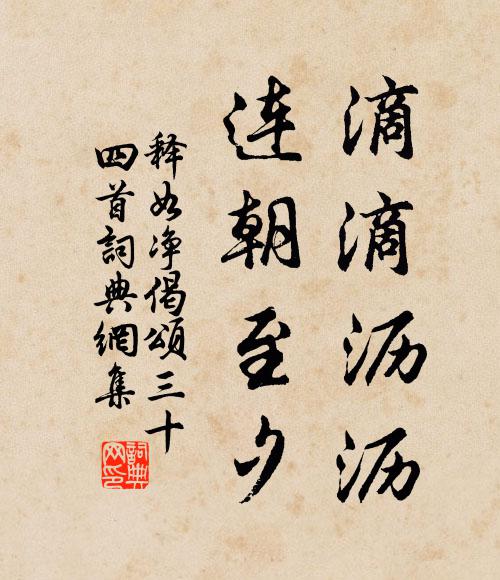 滴滴沥沥
连朝至夕
释如净偈颂三十
四首詞典網集
詞典
网印